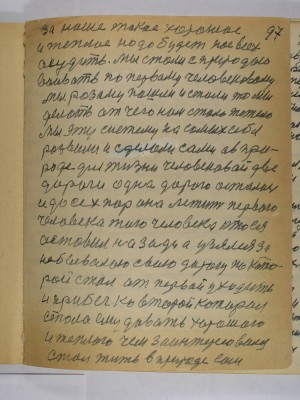 за наше такое хорошее 97
и теплое надо будет нас всех
судить. Мы стали с природою
воевать по первому человековому
мы розами пошли и стали то мы
делать от чего нам стало тепло
Мы эту систему на самих себя
развили и сделали сами в при-
роде для жизни человековой две
дороги одна дорога осталась
и до сех пор она лежит первого
человека того человека кто ея
оставил на заду а увлекся за
небывалою своею дорогу по кото-
рой стал от первой уходить
и прибег ко второй которая
стала ему давать хорошого
и теплого чем заинтересовался
стал жить в природе сам